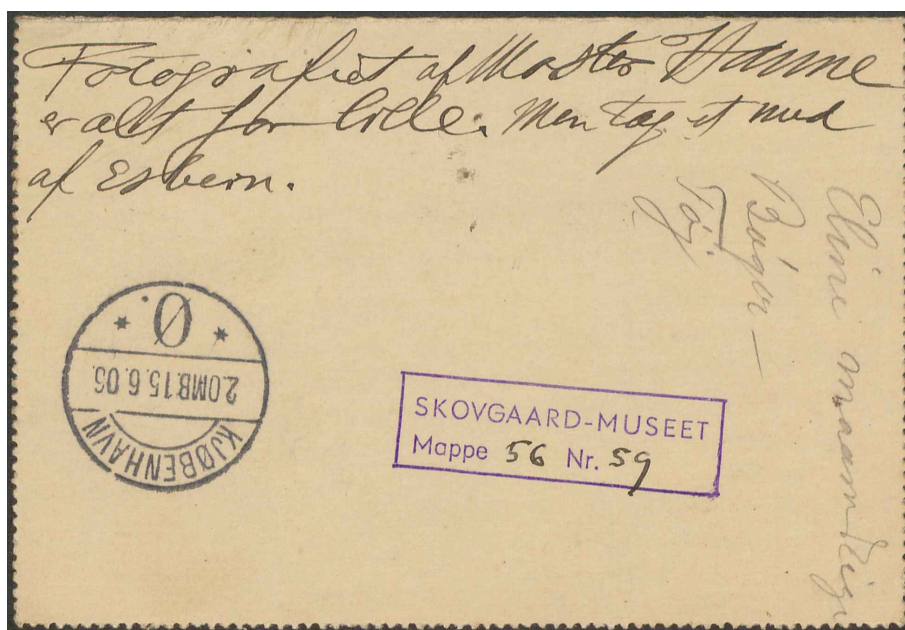 Fotografiet af Moster Hanne
er alt for lille. Men tag et med
af Esbern.
Bøger —
Tøj
KJØBENHAVN
2.OMB.15.6.06
Ø.
SKOVGAARD-MUSEET
Mappe 56 Nr. 59